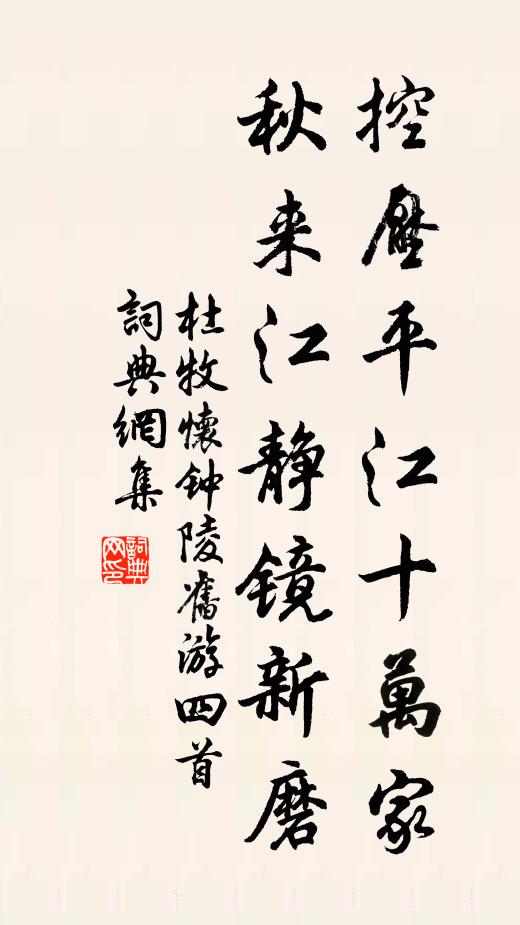 控壓平江十萬家
秋来江静鏡新磨
杜牧懷钟陵舊游四首
詞典網集
詞典網印